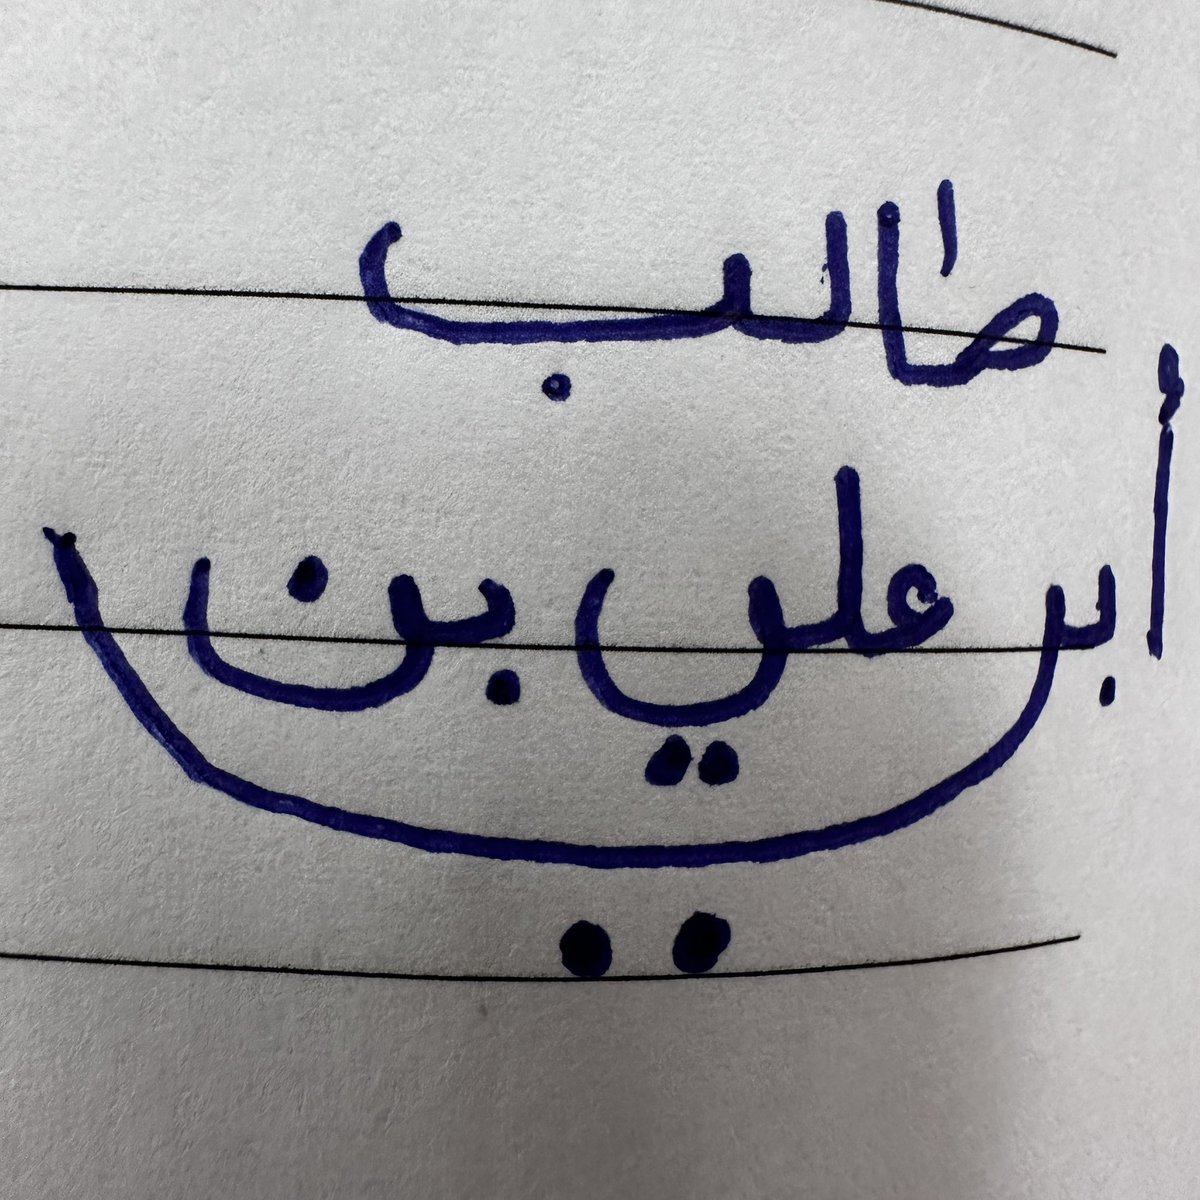 علي بن أبي
طالب